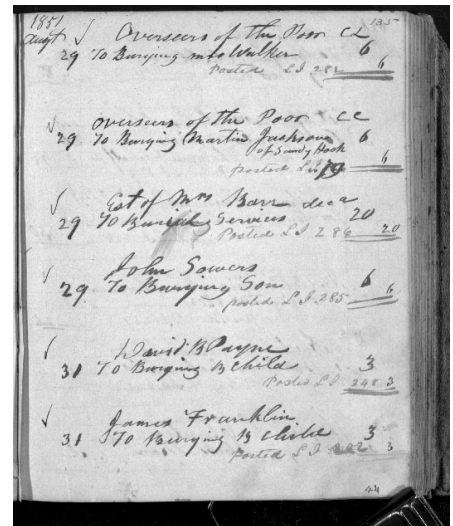 1851 135
Augt Overseers of the Poor CC
29 To Burying Mrs Walker 6
Posted L I 282 6
Overseers of the Poor CC
29 To Burying Martin Jackson 6
of Sandy Hook
posted L 6
Est of Mrs Barr decd
29 To Burial Services 20
Posted L I 286 20
John Sowers
29 To Burying Son 6
posted L I 285 6
David B Payne
31 To Burying B Child 3
Posted L I 248 3
James Franklin
31 To Burying B Child 3
posted L I 3
44